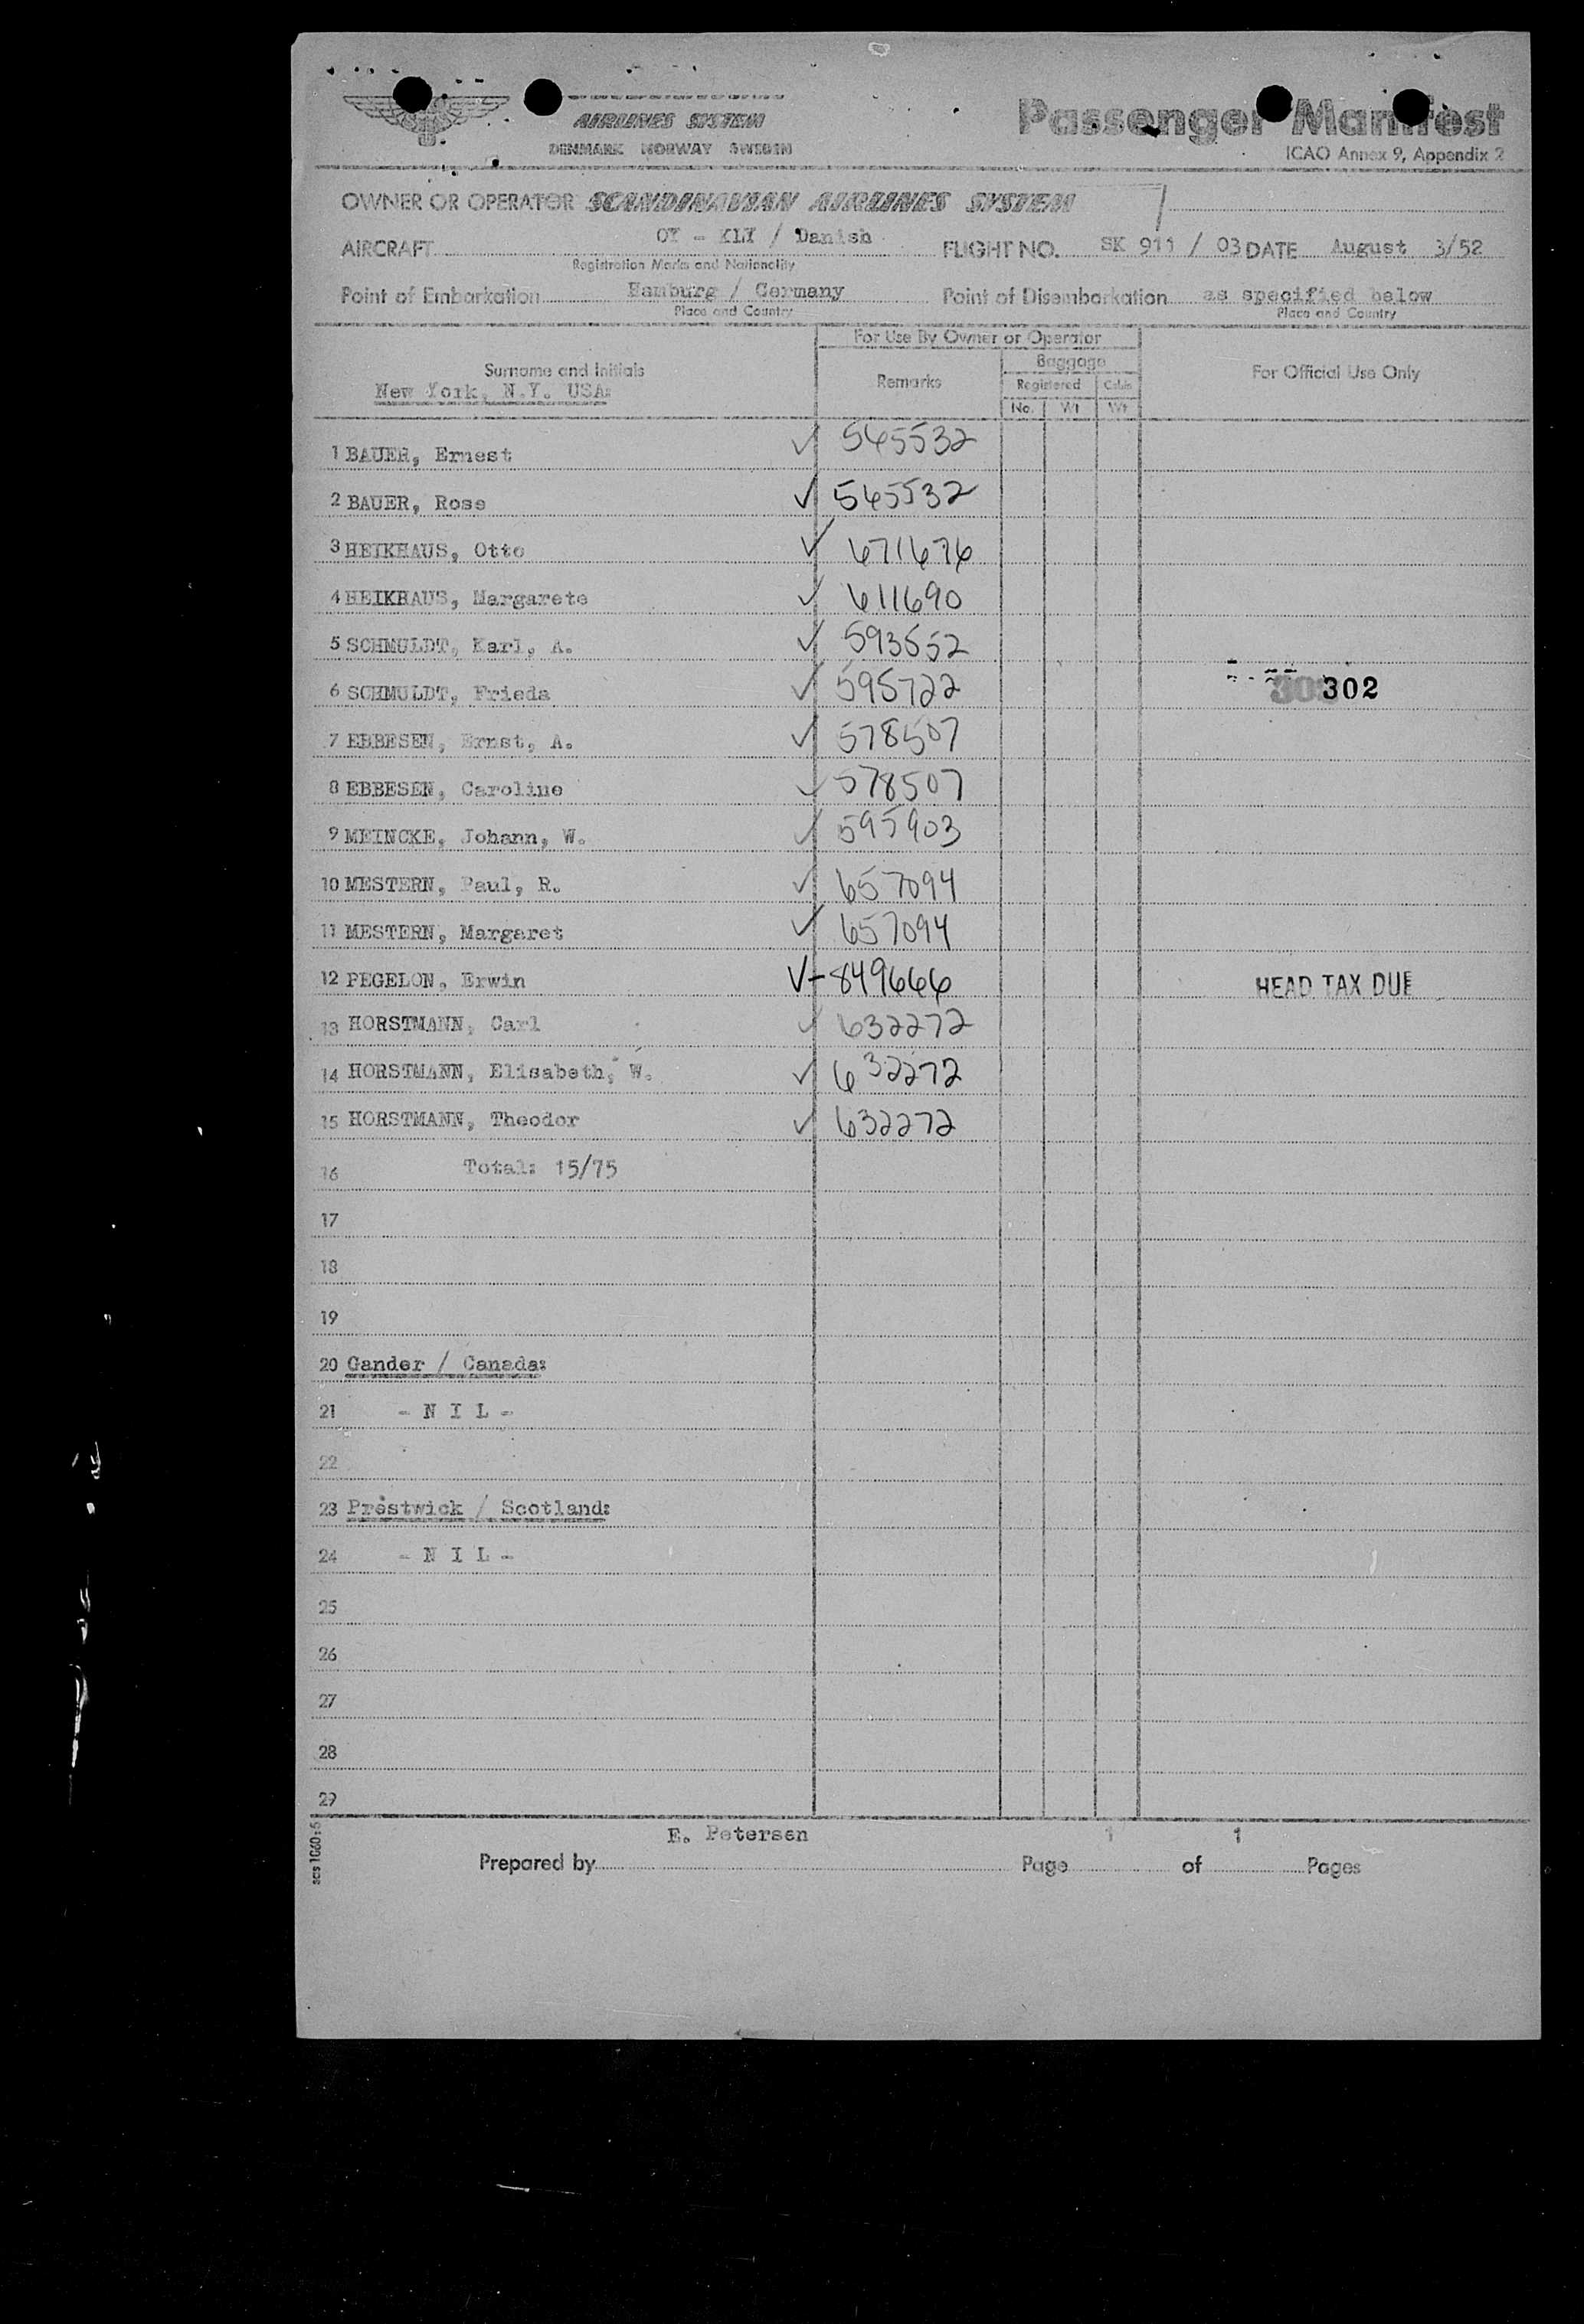 AIRLINES SYSTEM
DENMARK NORWAY SWEDEN
Passenger Manifest
ICAO Annex 9, Appendix 2
OWNER OR OPERATOR SCANDINAVIAN AIRLINES SYSTEM
AIRCRAFT OY - KLY / Danish FLIGHT NO. SK 911 / 03 DATE August 3/52
Registration Marks and Nationality
Point of Embarkation Hamburg / Germany Point of Disembarkation as specified below
Place and Country Place and Country
For Use By Owner or Operator
Baggage
Surname and Initials Remarks Registered Cabin For Official Use Only
New York, N.Y. USA:
No. Wt Wt
1 BAUER, Ernest ✓ 545532
2 BAUER, Rose ✓ 545532
3 HEIKHAUS, Otto ✓ 671676
4 HEIKHAUS, Margarete ✓ 611690
5 SCHMULDT, Karl, A. ✓ 593552
6 SCHMULDT, Frieda ✓ 595722 302
7 EBBESEN, Ernst, A. ✓ 578507
8 EBBESEN, Caroline ✓ 578507
9 MEINCKE, Johann, W. ✓ 595903
10 MESTERN, Paul, R. ✓ 657094
11 MESTERN, Margaret ✓ 657094
12 PEGELON, Erwin ✓ - 849666 HEAD TAX DUE
13 HORSTMANN, Carl ✓ 632272
14 HORSTMANN, Elisabeth, W. ✓ 632272
15 HORSTMANN, Theodor ✓ 632272
16 Total: 15/75
17
18
19
20 Gander / Canada:
21 - N I L -
22
23 Prestwick / Scotland:
24 - N I L -
25
26
27
28
29
E. Petersen 1 1
Prepared by Page of Pages
scs 1060:5